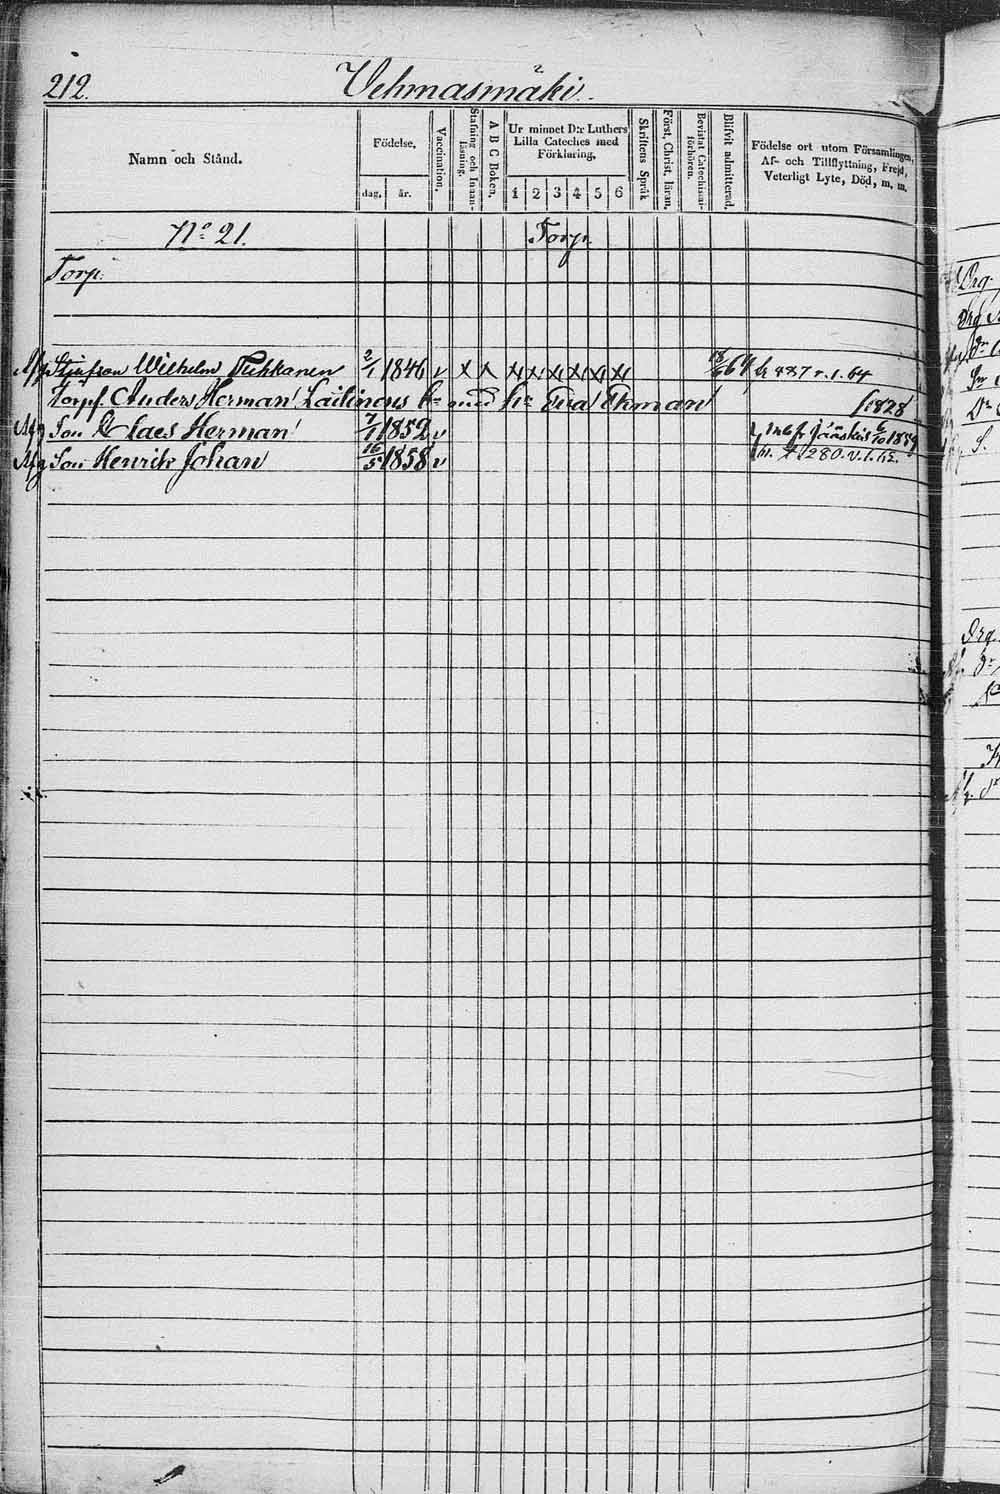 212.
Vehmasmäki.
Namn och Stånd.
Födelse,
dag.
år.
Vaccination.
Stafning och Innanläsning.
A B C Boken.
Ur minnet D:r Luthers Lilla Cateches med Förklaring,
1 2 3 4 5 6
Skriftens Språk
Först, Christ, läran.
Bevistat Catechisati-förhören.
Blifvit admitterad.
Födelse ort utom Församlingen, Af- och Tillflyttning, Frejd, Veterligt Lyte, Död, m. m.
No 21. Torp.
Torp.
Wilhelm 2/1 1846 v x x x x x x x x 64
Torpf. Anders Herman
Eva Ekman 1828
Afg Son Claes Herman 7/1 1852 v fr. Jääskis 6/10 1859
Afg Son Henrik Johan 16/5 1858 v